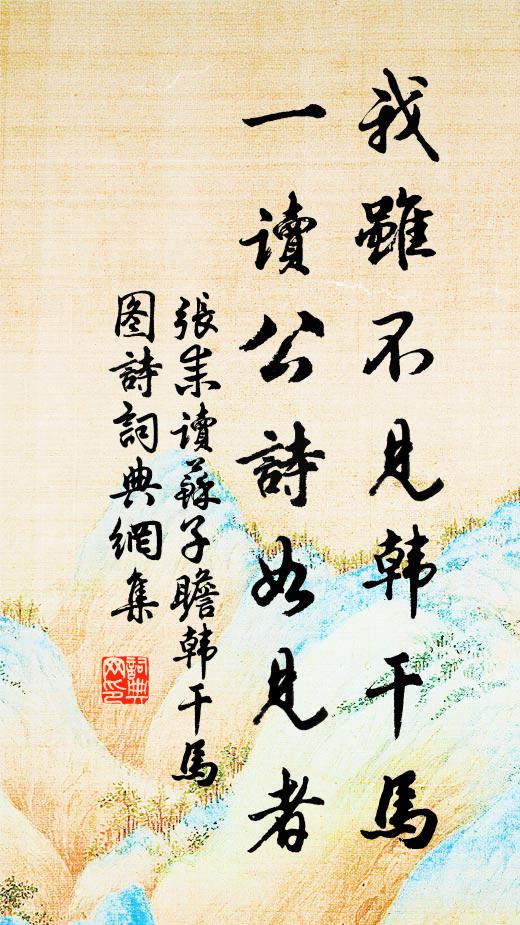 我雖不見韓干馬
一讀公詩如見者
張耒讀蘇子瞻韓干馬
图詩詞典網集
詞典
网印